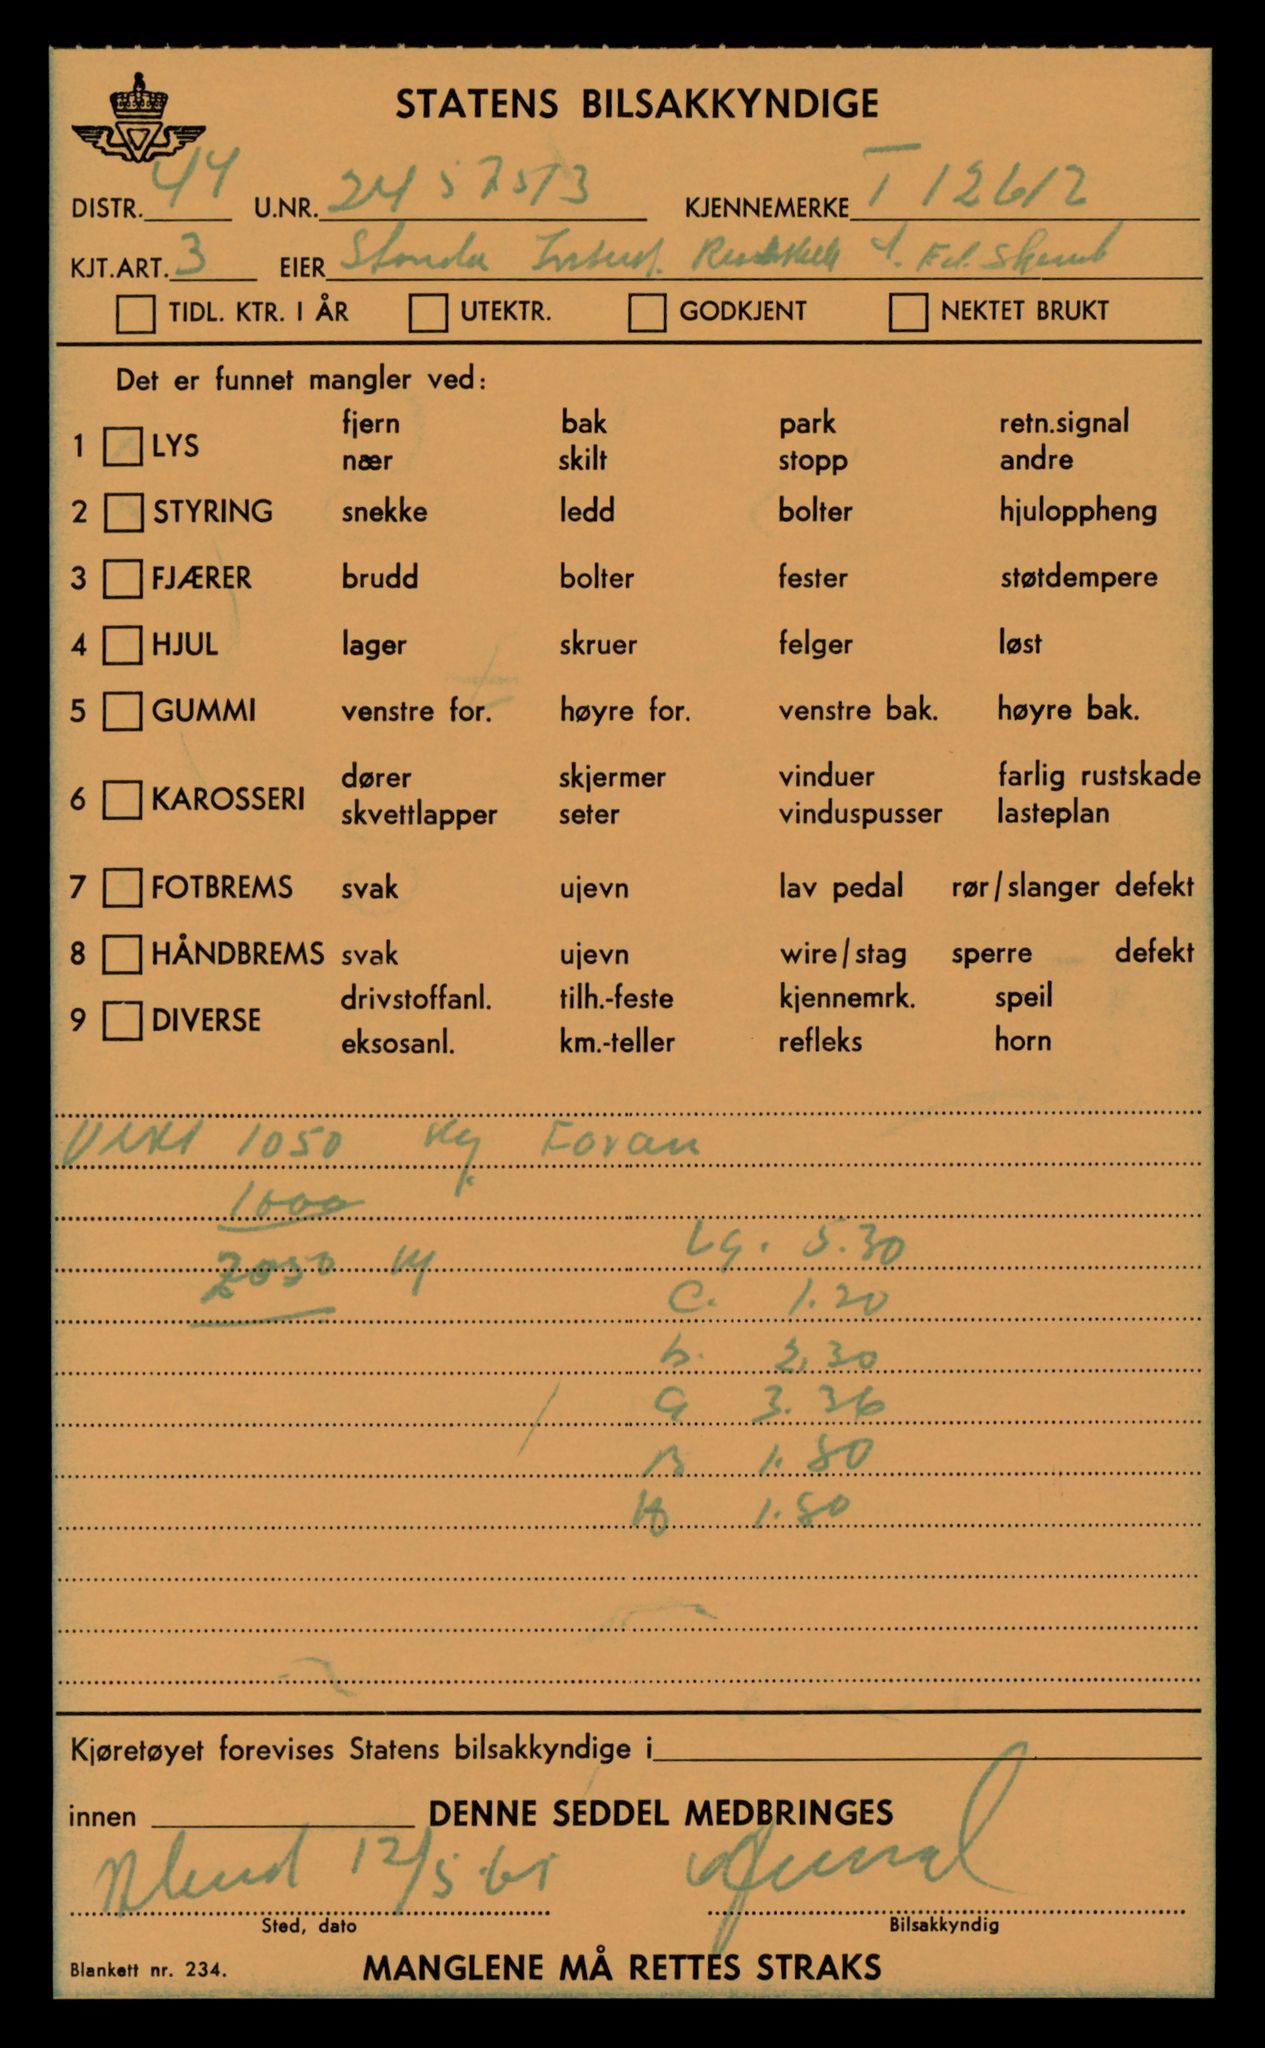 STATENS BILSAKKYNDIGE
DISTR. 44 U.NR. 2457513 KJENNEMERKE T 12612
KJT.ART. 3 EIER
TIDL. KTR. I ÅR UTEKTR. GODKJENT NEKTET BRUKT
Det er funnet mangler ved:
1 LYS fjern bak park retn.signal
nær skilt stopp andre
2 STYRING snekke ledd bolter hjuloppheng
3 FJÆRER brudd bolter fester støtdempere
4 HJUL lager skruer felger løst
5 GUMMI venstre for. høyre for. venstre bak. høyre bak.
6 KAROSSERI dører skjermer vinduer farlig rustskade
skvettlapper seter vinduspusser lasteplan
7 FOTBREMS svak ujevn lav pedal rør/slanger defekt
8 HÅNDBREMS svak ujevn wire/stag sperre defekt
9 DIVERSE drivstoffanl. tilh.-feste kjennemrk. speil
eksosanl. km.-teller refleks horn
Vekt 1050 kg Foran
1000
2050 kg
Lg. 5.30
C. 1.20
b. 2.30
a 3.36
B 1.80
H 1.80
Kjøretøyet forevises Statens bilsakkyndige i
innen DENNE SEDDEL MEDBRINGES
12/5-65
Sted, dato Bilsakkyndig
Blankett nr. 234. MANGLENE MÅ RETTES STRAKS